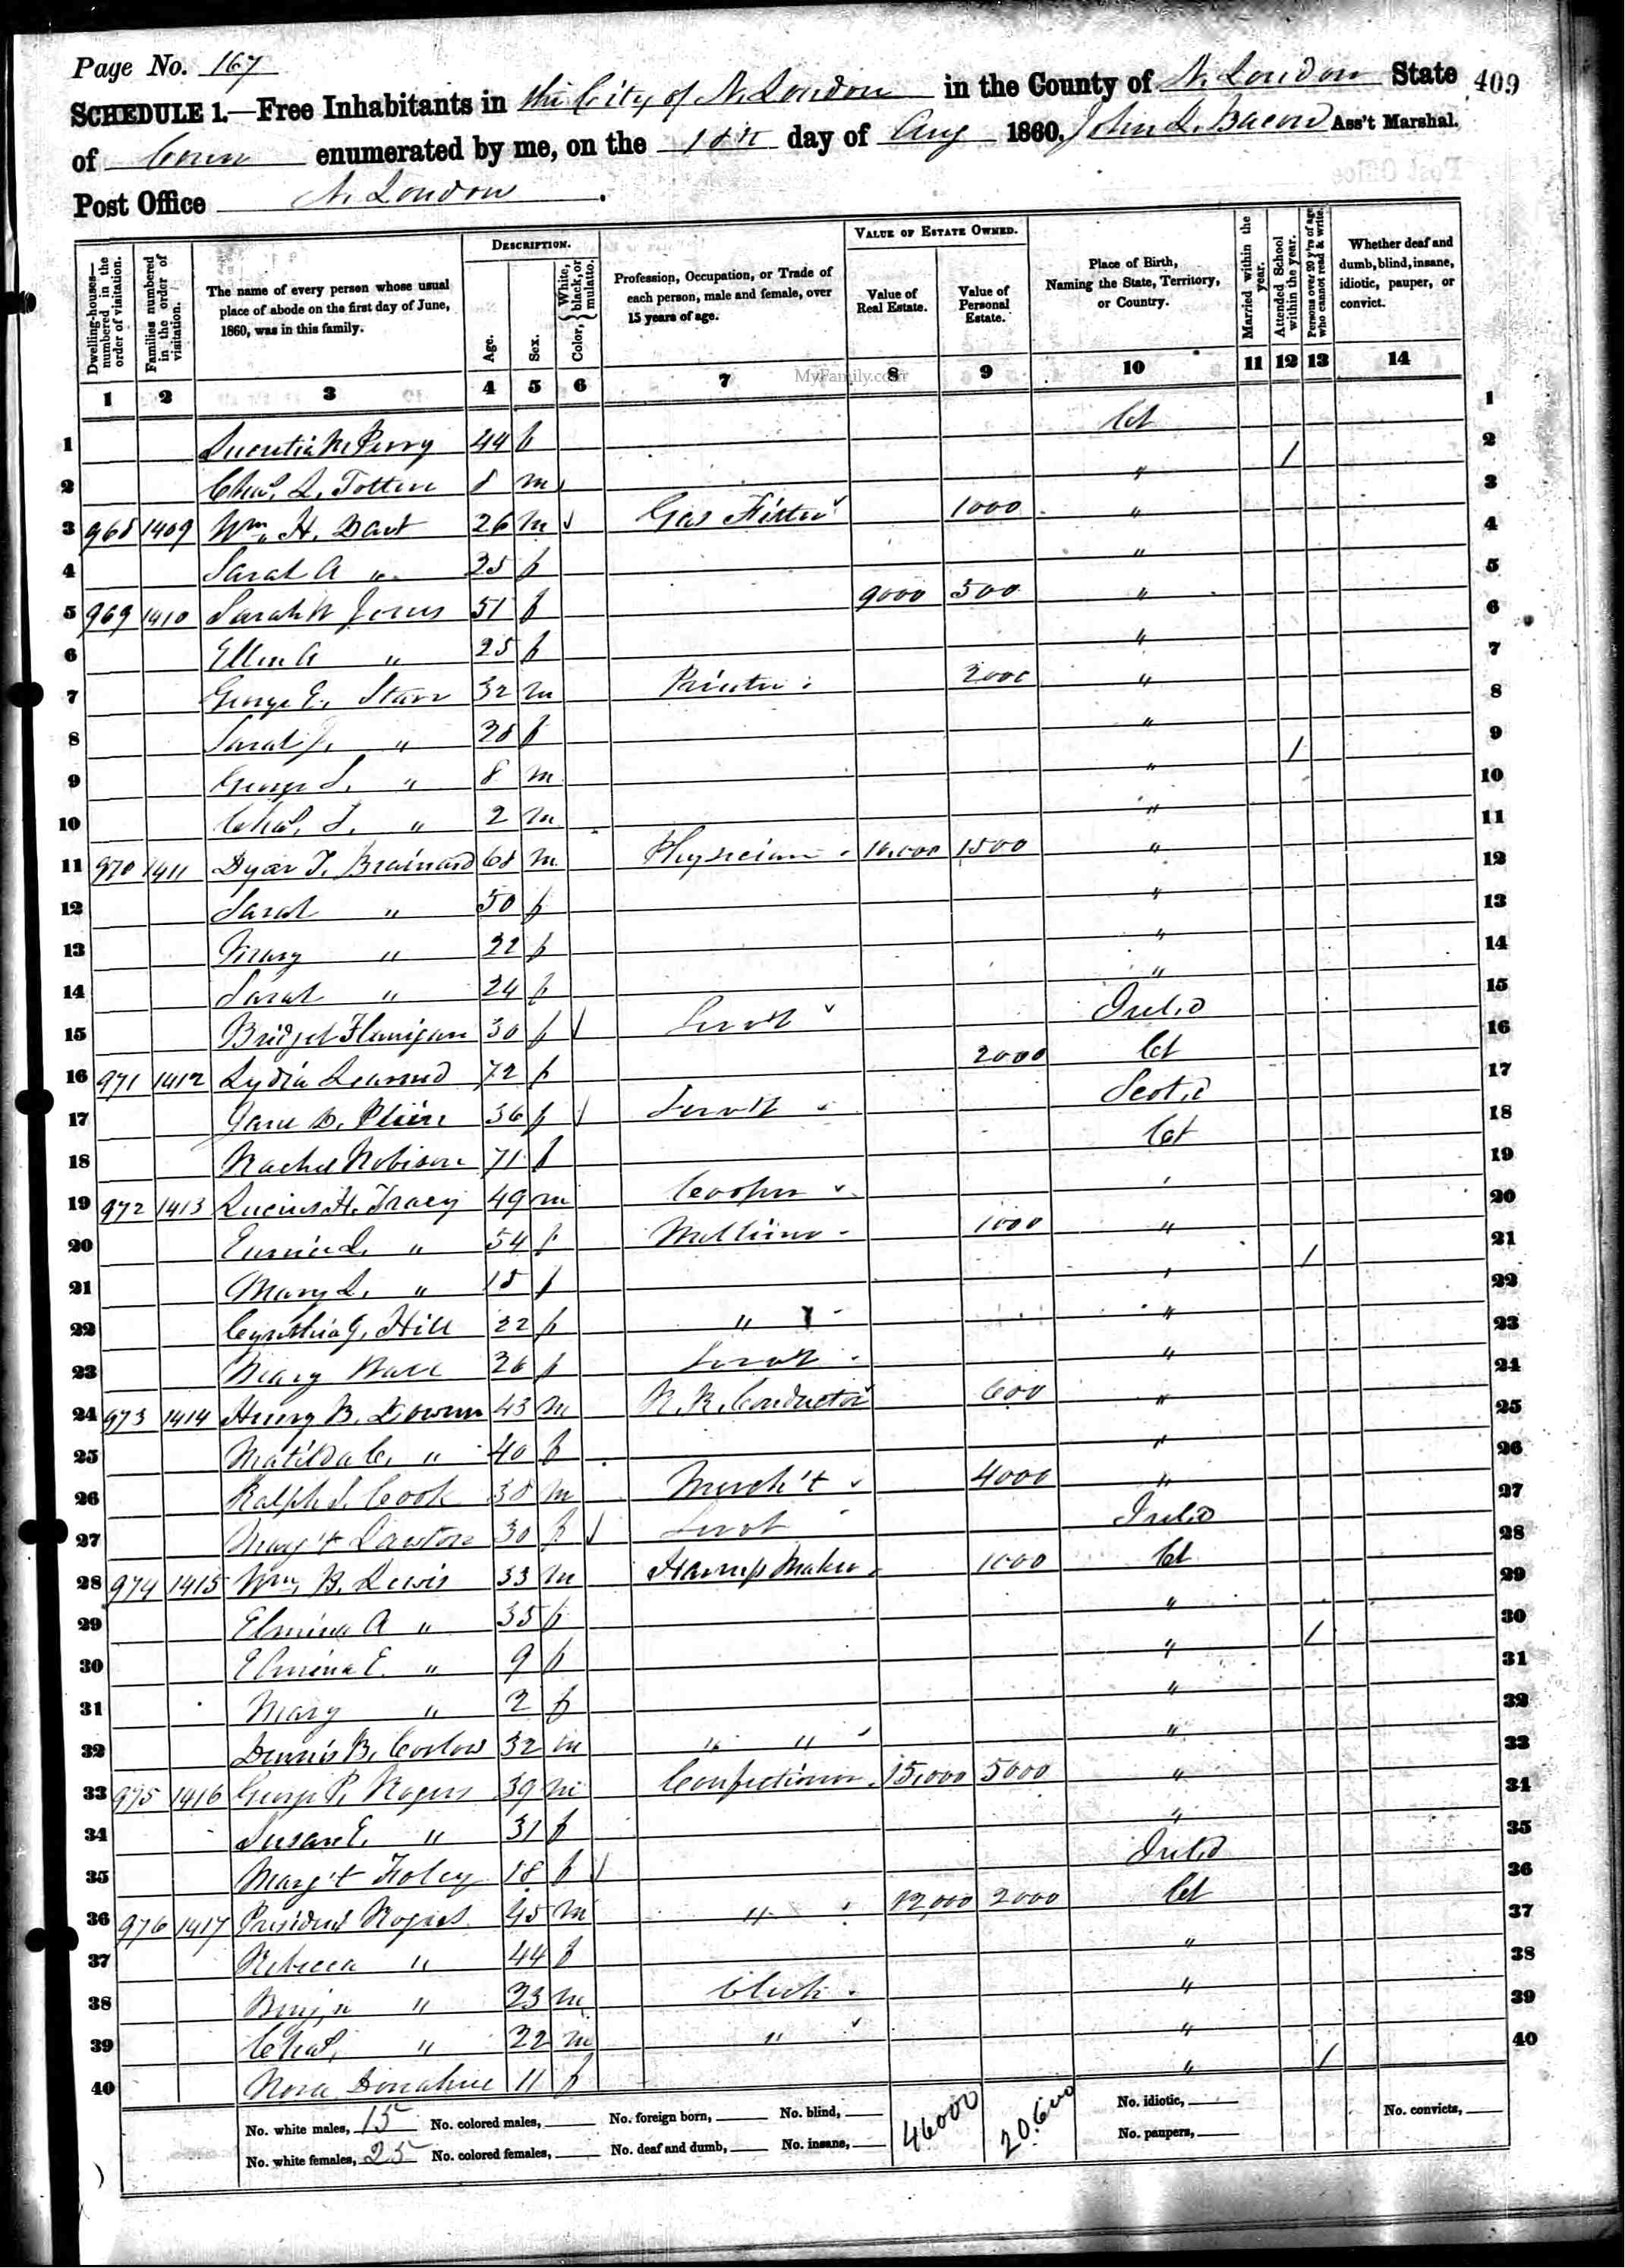 Page No. 167
409
SCHEDULE 1.—Free Inhabitants in the City of N. London in the County of N. London State
of Conn enumerated by me, on the day of Aug 1860. John L. Bacon Ass't Marshal.
Post Office N. London.
Dwelling-houses—numbered in the order of visitation.
Families numbered in the order of visitation.
The name of every person whose usual place of abode on the first day of June, 1860, was in this family.
DESCRIPTION.
Age.
Sex.
Color, { White, black, or mulatto.
Profession, Occupation, or Trade of each person, male and female, over 15 years of age.
VALUE OF ESTATE OWNED.
Value of Real Estate.
Value of Personal Estate.
Place of Birth, Naming the State, Territory, or Country.
Married within the year.
Attended School within the year.
Persons over 20 y'rs of age who cannot read & write.
Whether deaf and dumb, blind, insane, idiotic, pauper, or convict.
1 2 3 4 5 6 7 8 9 10 11 12 13 14
MyFamily.com
1 Lucretia M Perry 44 f Ct 1
2 Chas. L. Totten 8 m " / 2
3 968 1409 Wm. H. Dart 26 m Gas Fitter 1000 " 3
4 Sarah A " 25 f " 4
5 969 1410 Sarah W Jones 51 f 9000 500 " 5
6 Ellen A " 25 f " 6
7 George E. Starr 32 m Printer 2000 " 7
8 Sarah J. " 28 f " 8
9 George S. " 8 m " / 9
10 Chas. J. " 2 m " 10
11 970 1411 Dyar T. Brainard 68 m Physician 10,000 1500 " 11
12 Sarah " 50 f " 12
13 Mary " 22 f " 13
14 Sarah " 24 f " 14
15 Bridget Flanigan 30 f Servt Irel.d 15
16 971 1412 Lydia Learned 72 f 2000 Ct 16
17 Jane B. 36 f Servt Scot.d 17
18 Rachel Robison 71 f Ct 18
19 972 1413 Lucius H. Tracy 49 m Cooper " 19
20 L. " 54 f Milliner 1000 " 20
21 Mary L. " 15 f " / 21
22 Cynthia G. Hill 22 f " " 22
23 Mary 26 f Servt " 23
24 973 1414 Henry B. Downer 43 m R.R. Conductor 600 " 24
25 Matilda C. " 40 f " 25
26 Ralph S. Cook 38 m Merch't 4000 " 26
27 Marg't Lawton 30 f Servt Irel.d 27
28 974 1415 Wm. B. Lewis 33 m Harness Maker 1000 Ct 28
29 Elmina A " 35 f " 29
30 Elmina E. " 9 f " / 30
31 Mary " 2 f " 31
32 Dennis B. 32 m " " " 32
33 975 1416 George P. Rogers 39 m Confectioner 15,000 5000 " 33
34 Susan E. " 31 f " 34
35 Marg't Foley 18 f Irel.d 35
36 976 1417 President Rogers 45 m " 12,000 2000 Ct 36
37 Rebecca " 44 f " 37
38 Benj.n " 23 m Clerk " 38
39 Chas. " 22 m " " 39
40 Nora Donahue 11 f " / 40
No. white males, 15 No. colored males, No. foreign born, No. blind, 46000 20.600 No. idiotic, No. convicts,
No. white females, 25 No. colored females, No. deaf and dumb, No. insane, No. paupers,